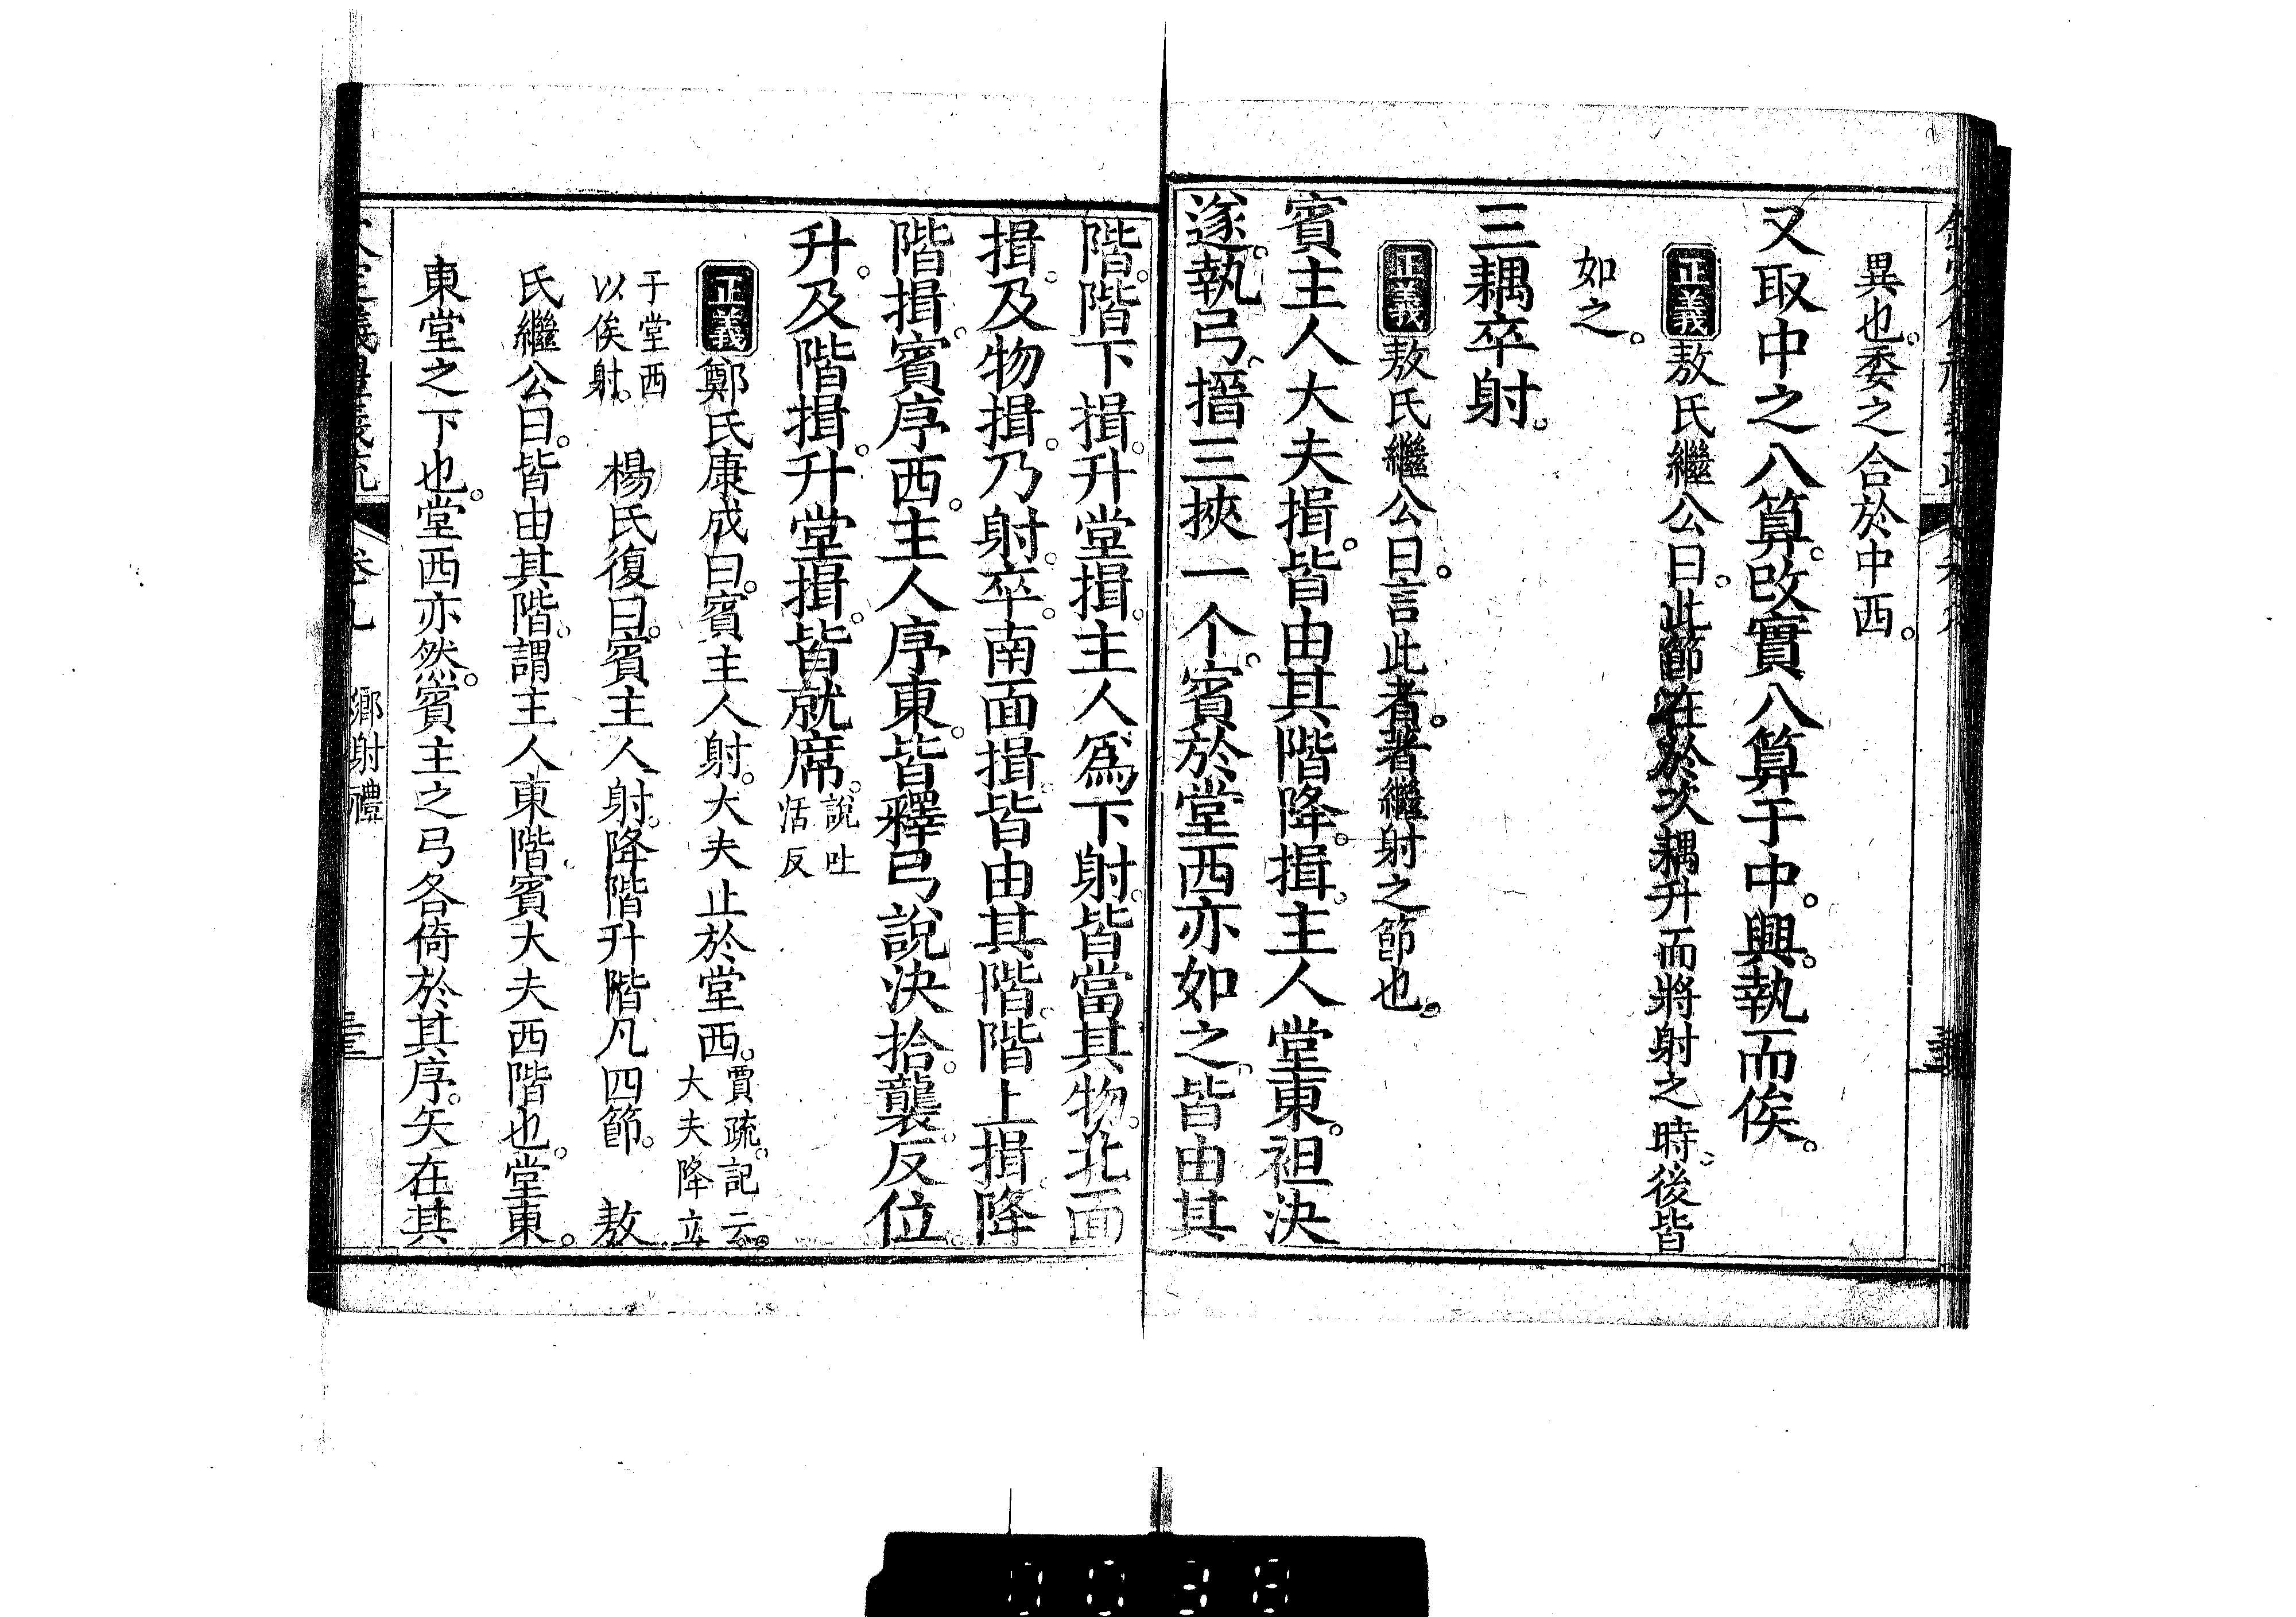 異也。委之合於中西。
又取中之八算。改實八算于中。興。執而俟。
正義敖氏繼公曰。此節在於次耦升而將射之時。後皆
如之。
三耦卒射。
正義敖氏繼公曰。言此者。著繼射之節也。
賓主人大夫揖。皆由其階降。揖。主人堂東。袒決
遂。執弓。搢三挾一个。賓於堂西亦如之。皆由其
階。階下揖。升堂揖。主人爲下射。皆當其物。北面
揖。及物揖。乃射。卒。南面揖。皆由其階。階上揖。降
階揖。賓序西。主人序東。皆釋弓。說決拾。襲。反位。
升。及階揖。升堂揖。皆就席。說吐活反
正義鄭氏康成曰。賓主人射。大夫止於堂西。賈疏。記云。大夫降立
于堂西以俟射。 楊氏復曰。賓主人射。降階升階凡四節。 敖
氏繼公曰。皆由其階。謂主人東階。賓大夫西階也。堂東。
東堂之下也。堂西亦然。賓主之弓各倚於其序。矢在其
義禮義疏 卷九 鄉射禮